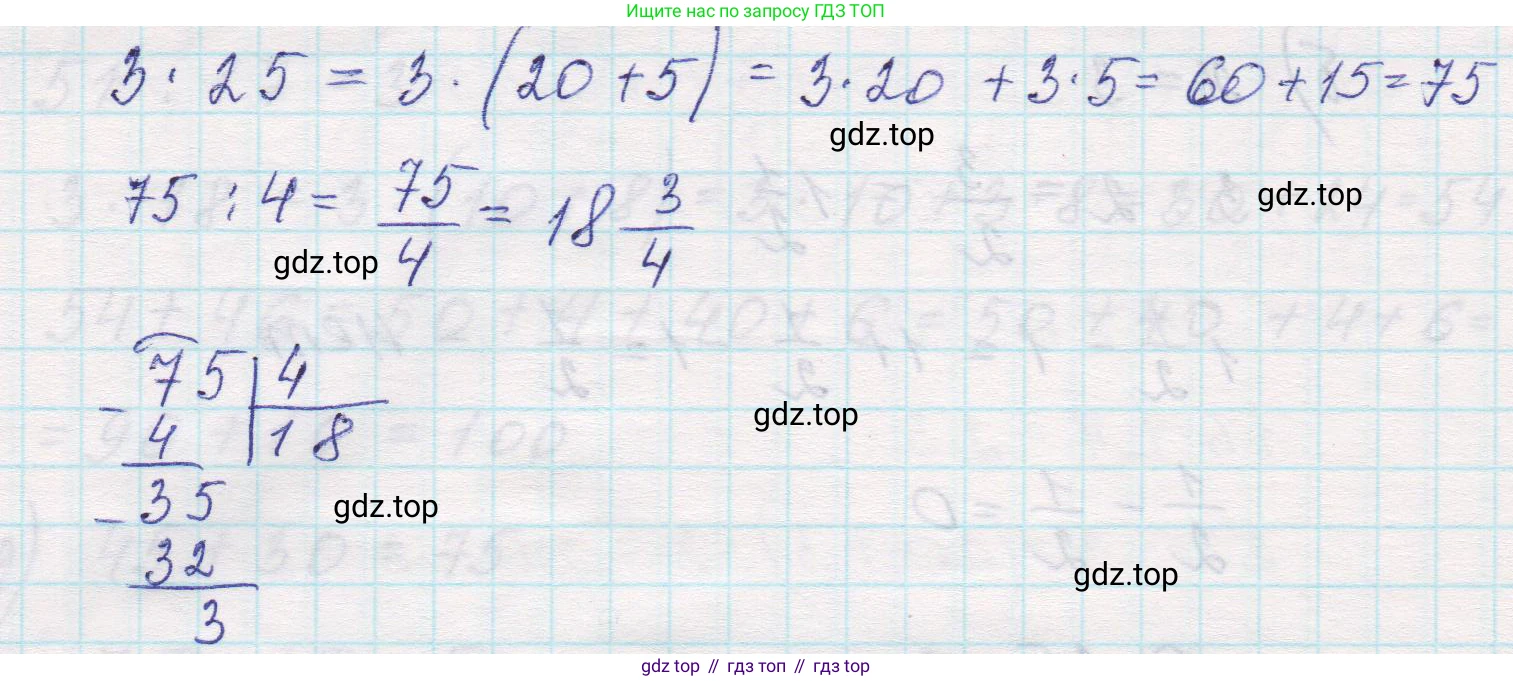 Ищите нас по запросу ГДЗ ТОП
3 · 25 = 3 · (20 + 5) = 3 · 20 + 3 · 5 = 60 + 15 = 75
gdz.top
75 : 4 = 75/4 = 18 3/4
gdz.top
gdz.top
- 75 | 4
4 | 18
gdz.top
- 35
gdz.top
32
gdz.top
3
gdz top // гдз топ // гдз.top